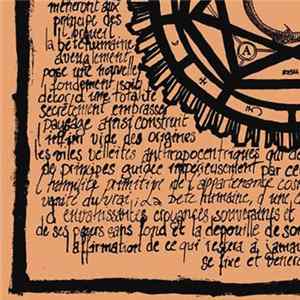 mèneront aux
principe des
l'orgueil
la bête humaine
aveuglement
pose une nouvelle
fondement soit
d'étoffe une totale
secrètement embrasse
paysage ainsi construit
infini vide des origines
les viles velléités anthropocentriques qui
de principes guidée impérieusement par ce
l'humilité primitive de l'appartenance cos
vérité du vrai, la bête humaine, d'une
d'envahissantes croyances souveraines et
de ses peurs sans fond et la dépouille de son
affirmation de ce qui restera à jamais
se fixe et vénère
A